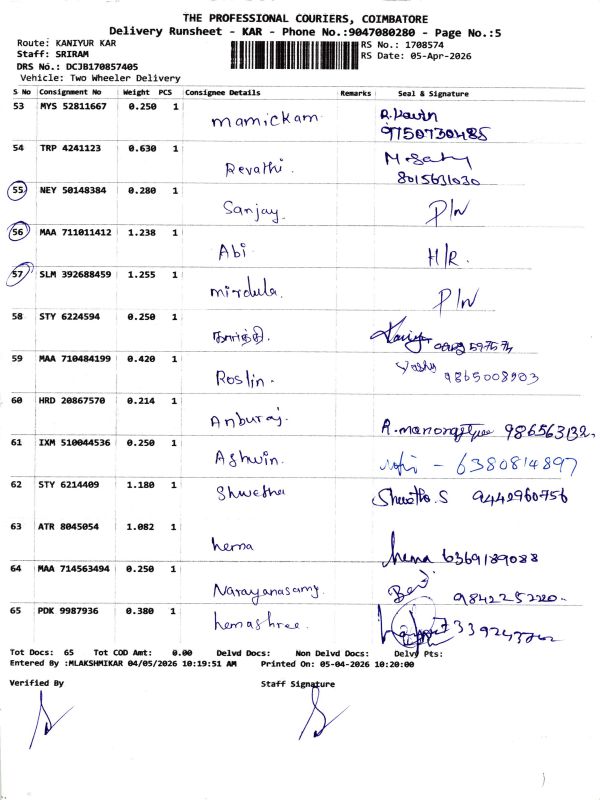 THE PROFESSIONAL COURIERS, COIMBATORE
Delivery Runsheet - KAR - Phone No.:9047080280 - Page No.:5
Route: KANIYUR KAR
Staff: SRIRAM
DRS No.: DCJB170857405
Vehicle: Two Wheeler Delivery
RS No.: 1708574
RS Date: 05-Apr-2026
S No Consignment No Weight PCS Consignee Details Remarks Seal & Signature
53 MYS 52811667 0.250 1 Mamickam R.Kavin
9750730485
54 TRP 4241123 0.630 1 Revathi.
8015631030
55 NEY 50148384 0.280 1 Sanjay. P/W
56 MAA 711011412 1.238 1 Abi H/R.
57 SLM 392688459 1.255 1 mirdula. P/W
58 STY 6224594 0.250 1
59 MAA 710484199 0.420 1 Roslin. 9865008903
60 HRD 20867570 0.214 1 Anburaj.
61 IXM 510044536 0.250 1 Ashwin. - 6380814897
62 STY 6214409 1.180 1 Shwetha Shwetha.S 9442960756
63 ATR 8045054 1.082 1 hema hema 6369189088
64 MAA 714563494 0.250 1 Narayanasamy. 9842252220.
65 PDK 9987936 0.380 1 hemashree.
Tot Docs: 65 Tot COD Amt: 0.00 Delvd Docs: Non Delvd Docs: Delvy Pts:
Entered By :MLAKSHMIKAR 04/05/2026 10:19:51 AM Printed On: 05-04-2026 10:20:00
Verified By Staff Signature